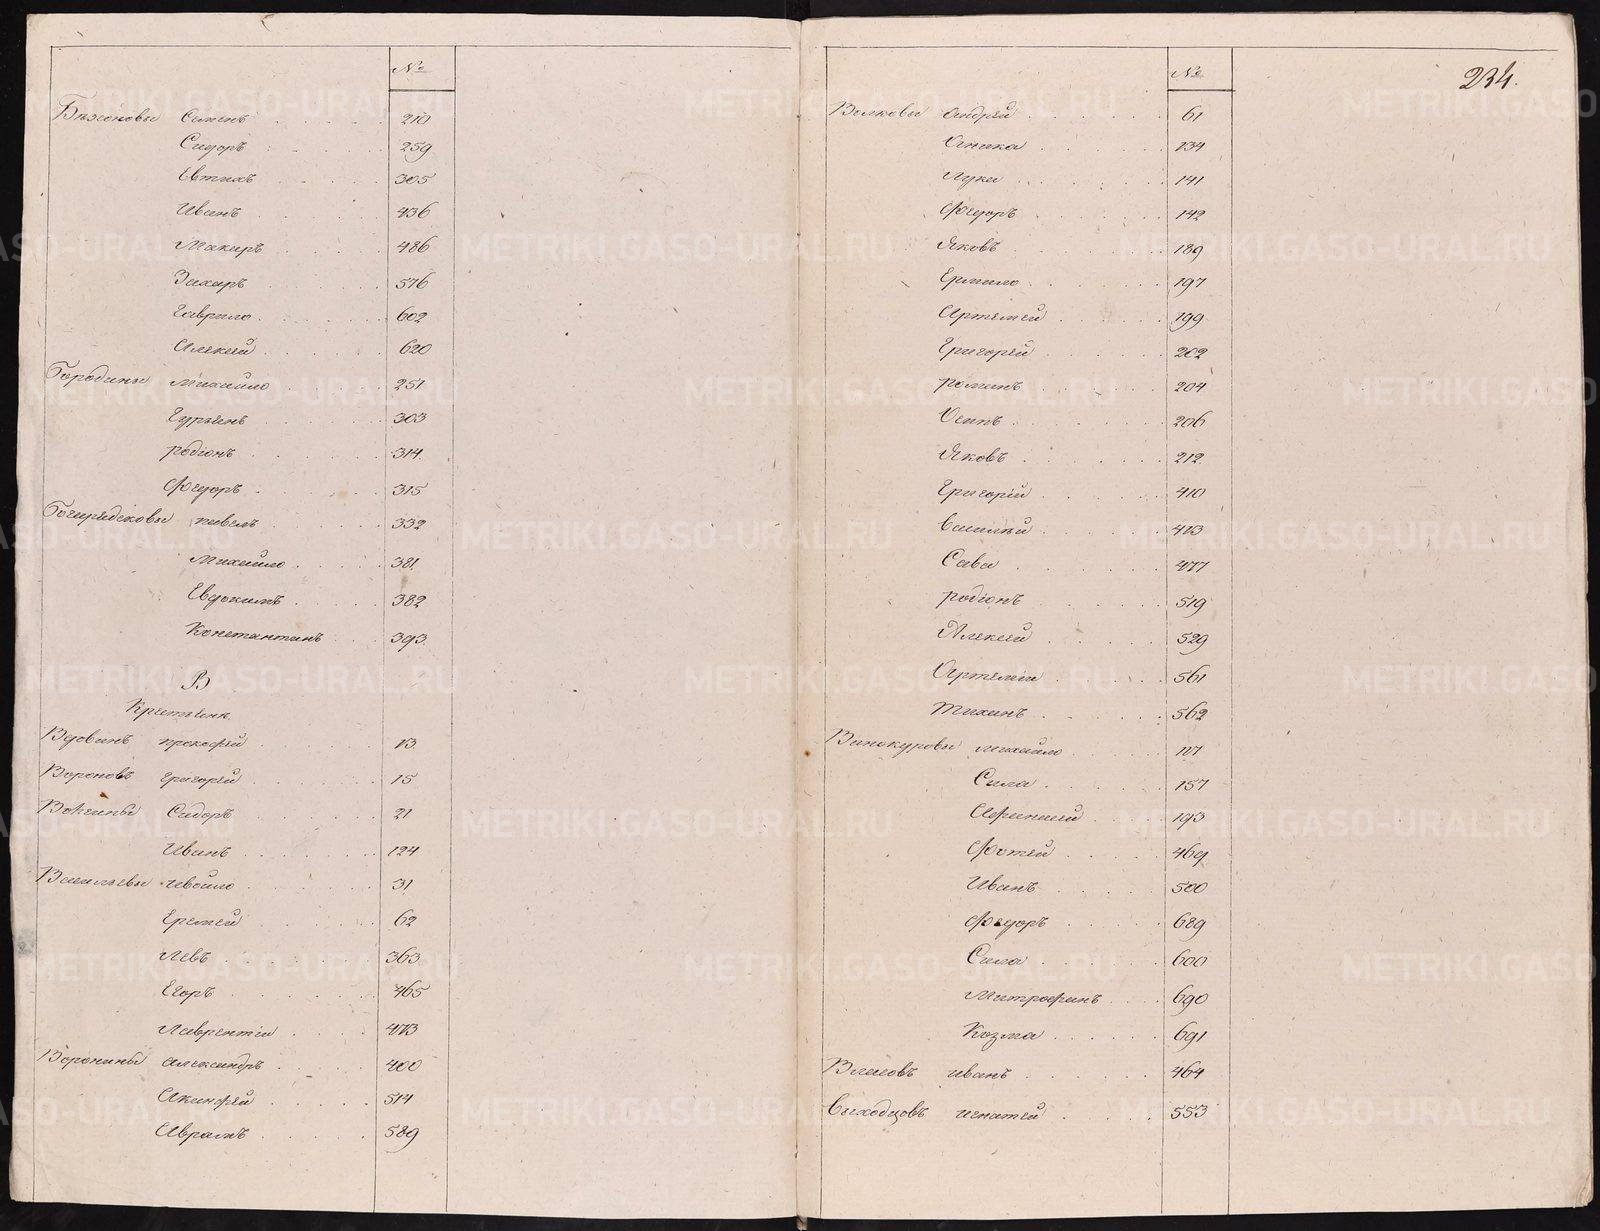 №
Симонъ 210
Сидоръ 259
Евтихъ 305
Иванъ 436
Макаръ 486
Захаръ 576
Гаврило 602
Алексей 620
Бородины Михайло 251
Гурьянъ 303
родіонъ 314
Ѳедоръ 315
павелъ 332
Михайло 381
Евдокимъ 382
Константинъ 393
В
Крестьяне
Вдовинъ прокофей 13
Вороновъ григорей 15
Сидоръ 21
Иванъ 124
Васильевы 31
Еремей 62
Левъ 363
Егоръ 465
Лаврентіи 473
Воронины александръ 400
Акинфей 514
Аврамъ 589
№
234.
Волковы Андрей 61
Аника 134
Лука 141
Ѳедоръ 142
Яковъ 189
Ермило 197
Артемей 199
Григорей 202
романъ 204
Осипъ 206
Яковъ 212
Григорій 410
василей 413
Сава 477
родіонъ 519
Алексей 529
Артемеи 561
Тиханъ 562
Винокуровы михайло 117
Сила 157
Афанасей 193
Фотей 469
Иванъ 500
Федоръ 689
Сила 600
Митрофанъ 690
Козма 691
Власовъ иванъ 464
Выходцовъ игнатей 553
METRIKI.GASO-URAL.RU